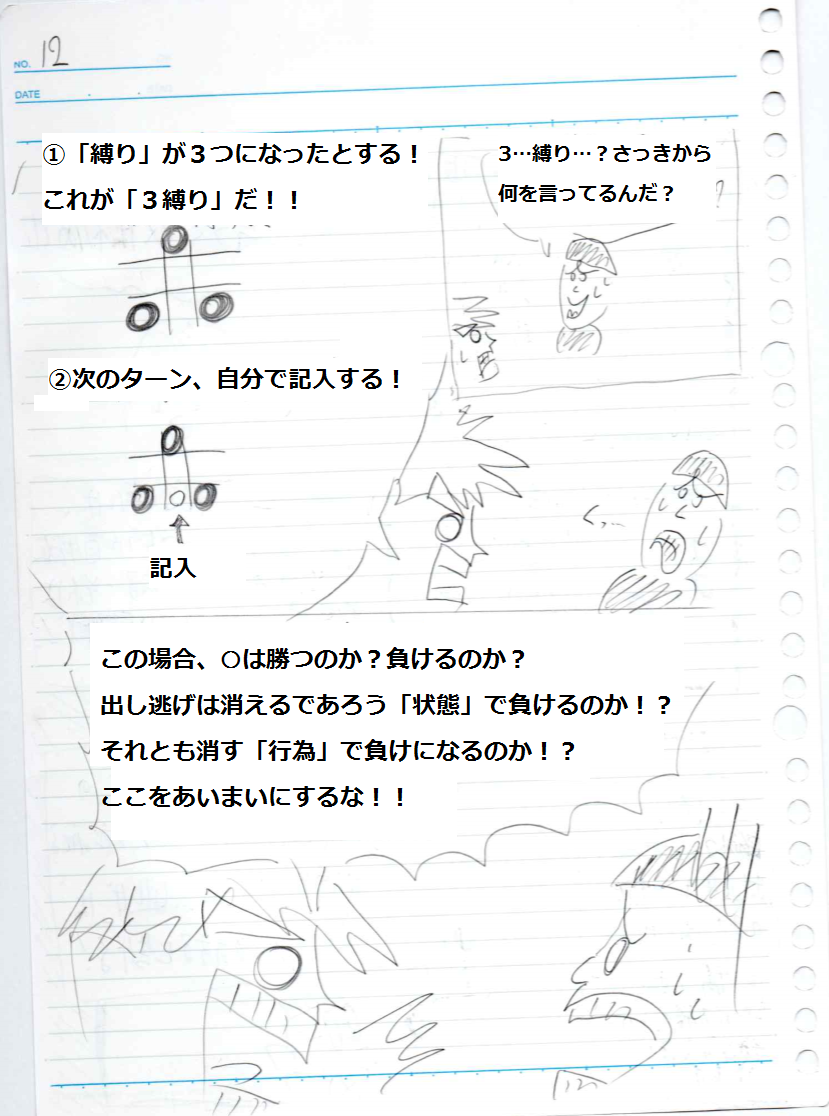 NO. 12
DATE
①「縛り」が３つになったとする！
これが「３縛り」だ！！
3…縛り…？さっきから
何を言ってるんだ？
？
②次のターン、自分で記入する！
記入
くっ…
この場合、〇は勝つのか？負けるのか？
出し逃げは消えるであろう「状態」で負けるのか！？
それとも消す「行為」で負けになるのか！？
ここをあいまいにするな！！